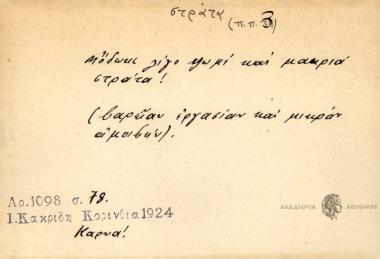 στράτα
(π.π. 3)
Μὄδωκε λίγο ψωμί καί μακριά
στράτα!
(βαρεῖαν ἐργασίαν καί μικράν
ἀμοιβήν).
Αρ. 1098 σ. 78.
Ι. Κακριδη Κορινθια 1924
Καρυα!
ΑΚΑΔΗΜΙΑ ΑΘΗΝΩΝ